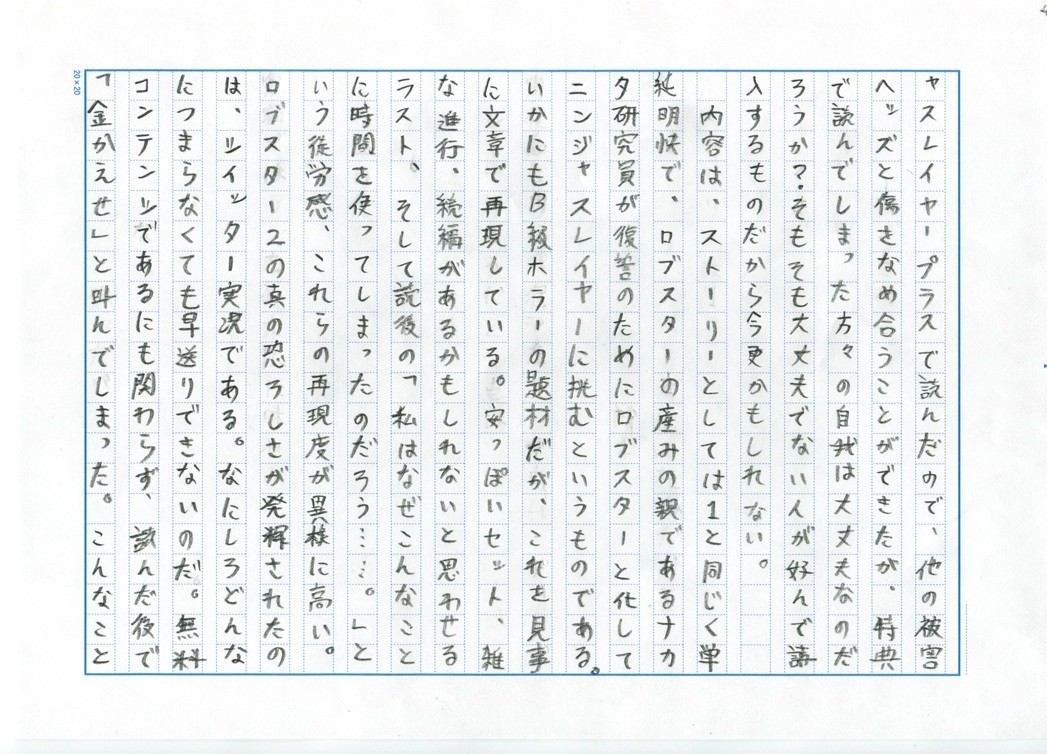 ャスレイヤープラスで読んだので、他の被害
ヘッズと傷をなめ合うことができたが、特典
で読んでしまった方々の自我は大丈夫なのだ
ろうか?そもそも大丈夫でない人が好んで購
入するものだから今更かもしれない。
内容は、ストーリーとしては1と同じく単
純明快で、ロブスターの産みの親であるナカ
タ研究員が復讐のためにロブスターと化して
ニンジャスレイヤーに挑むというものである。
いかにもB級ホラーの題材だが、これを見事
に文章で再現している。安っぽいセット、雑
な進行、続編があるかもしれないと思わせる
ラスト、そして読後の「私はなぜこんなこと
に時間を使ってしまったのだろう……。」と
いう徒労感、これらの再現度が異様に高い。
ロブスター2の真の恐ろしさが発揮されたの
は、ツイッター実況である。なにしろどんな
につまらなくても早送りできないのだ。無料
コンテンツであるにも関わらず、読んだ後で
「金かえせ」と叫んでしまった。こんなこと
20×20